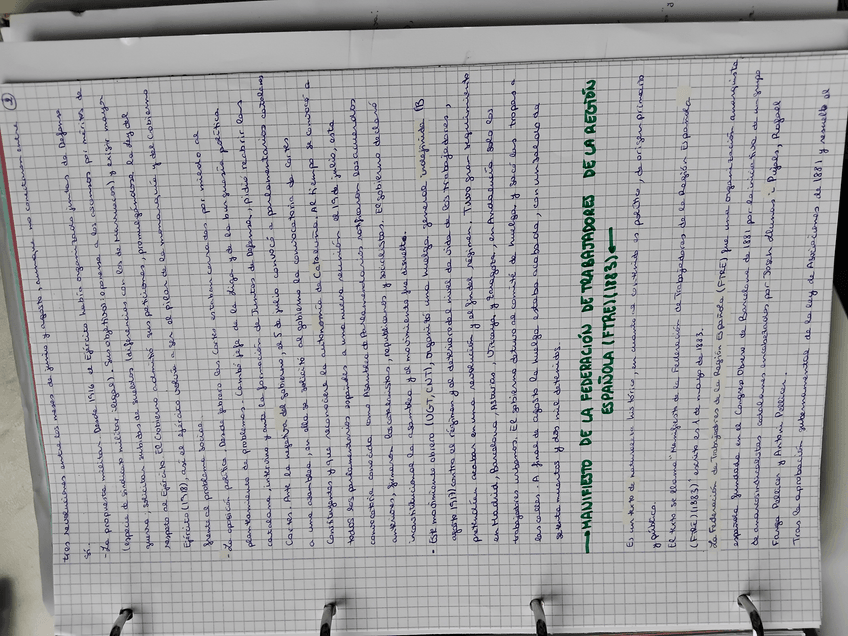 ②
tres revoluciones entre los meses de junio y agosto, aunque no conectaron entre
sí.
- La propuesta militar. Desde 1916 el Ejército había organizado Juntas de Defensa
(especie de sindicato militar legal). Sus objetivos: oponerse a los ascensos por méritos de
guerra, solicitar subidas de sueldos (diferencias con los de Marruecos) y exigir mayor
respeto al Ejército. El Gobierno admitió sus peticiones, promulgándose la Ley del
Ejército (1918), así el ejército volvió a ser el pilar de la monarquía y del Gobierno
frente al problema social.
- La oposición política. Desde febrero las Cortes estaban cerradas por miedo al
planteamiento de problemas. Cambó, jefe de la Lliga y de la burguesía política
catalana, intervino y ante la formación de Juntas de Defensa, pidió reabrir las
Cortes. Ante la negativa del gobierno, el 5 de julio convocó a parlamentarios catalanes
a una asamblea, en ella se solicitó al gobierno la convocatoria de Cortes
Constituyentes y que reconociera la autonomía de Cataluña. Al tiempo se convocó a
todos los parlamentarios españoles a una nueva reunión el 19 de julio, esta
convocatoria conocida como Asamblea de Parlamentarios ratificaron los acuerdos
anteriores, fueron los catalanistas, republicanos y socialistas. El gobierno declaró
inconstitucional la asamblea y el movimiento fue disuelto.
• Ese movimiento obrero (UGT, CNT), organizó una huelga general indefinida (13
agosto 1917) contra el régimen y el deterioro del nivel de vida de los trabajadores,
pretendían acabar en una revolución y el fin del régimen. Tuvo gran seguimiento
en Madrid, Barcelona, Asturias, Vizcaya y Zaragoza, en Andalucía solo los
trabajadores urbanos. El gobierno detuvo al comité de huelga y sacó las tropas a
las calles. A final de agosto la huelga estaba acabada, con un saldo de
setenta muertos y dos mil detenidos.
→ MANIFIESTO DE LA FEDERACIÓN DE TRABAJADORES DE LA REGIÓN
ESPAÑOLA (FTRE) (1883) ←
Es un texto de naturaleza histórica, en cuanto a contenido es político, de origen primario
y público.
El texto se llama "Manifiesto de la Federación de Trabajadores de la Región Española
(FTRE) (1883)" escrito en 1 de marzo de 1883.
La Federación de Trabajadores de la Región Española (FTRE) fue una organización anarquista
española fundada en el Congreso Obrero de Barcelona de 1881 por la iniciativa de un grupo
de anarcosindicalistas catalanes encabezados por Josep Llunas i Pujals, Rafael
Farga Pellicer y Antoni Pellicer.
Tras la aprobación gubernamental de la Ley de Asociaciones de 1881 y resuelto el